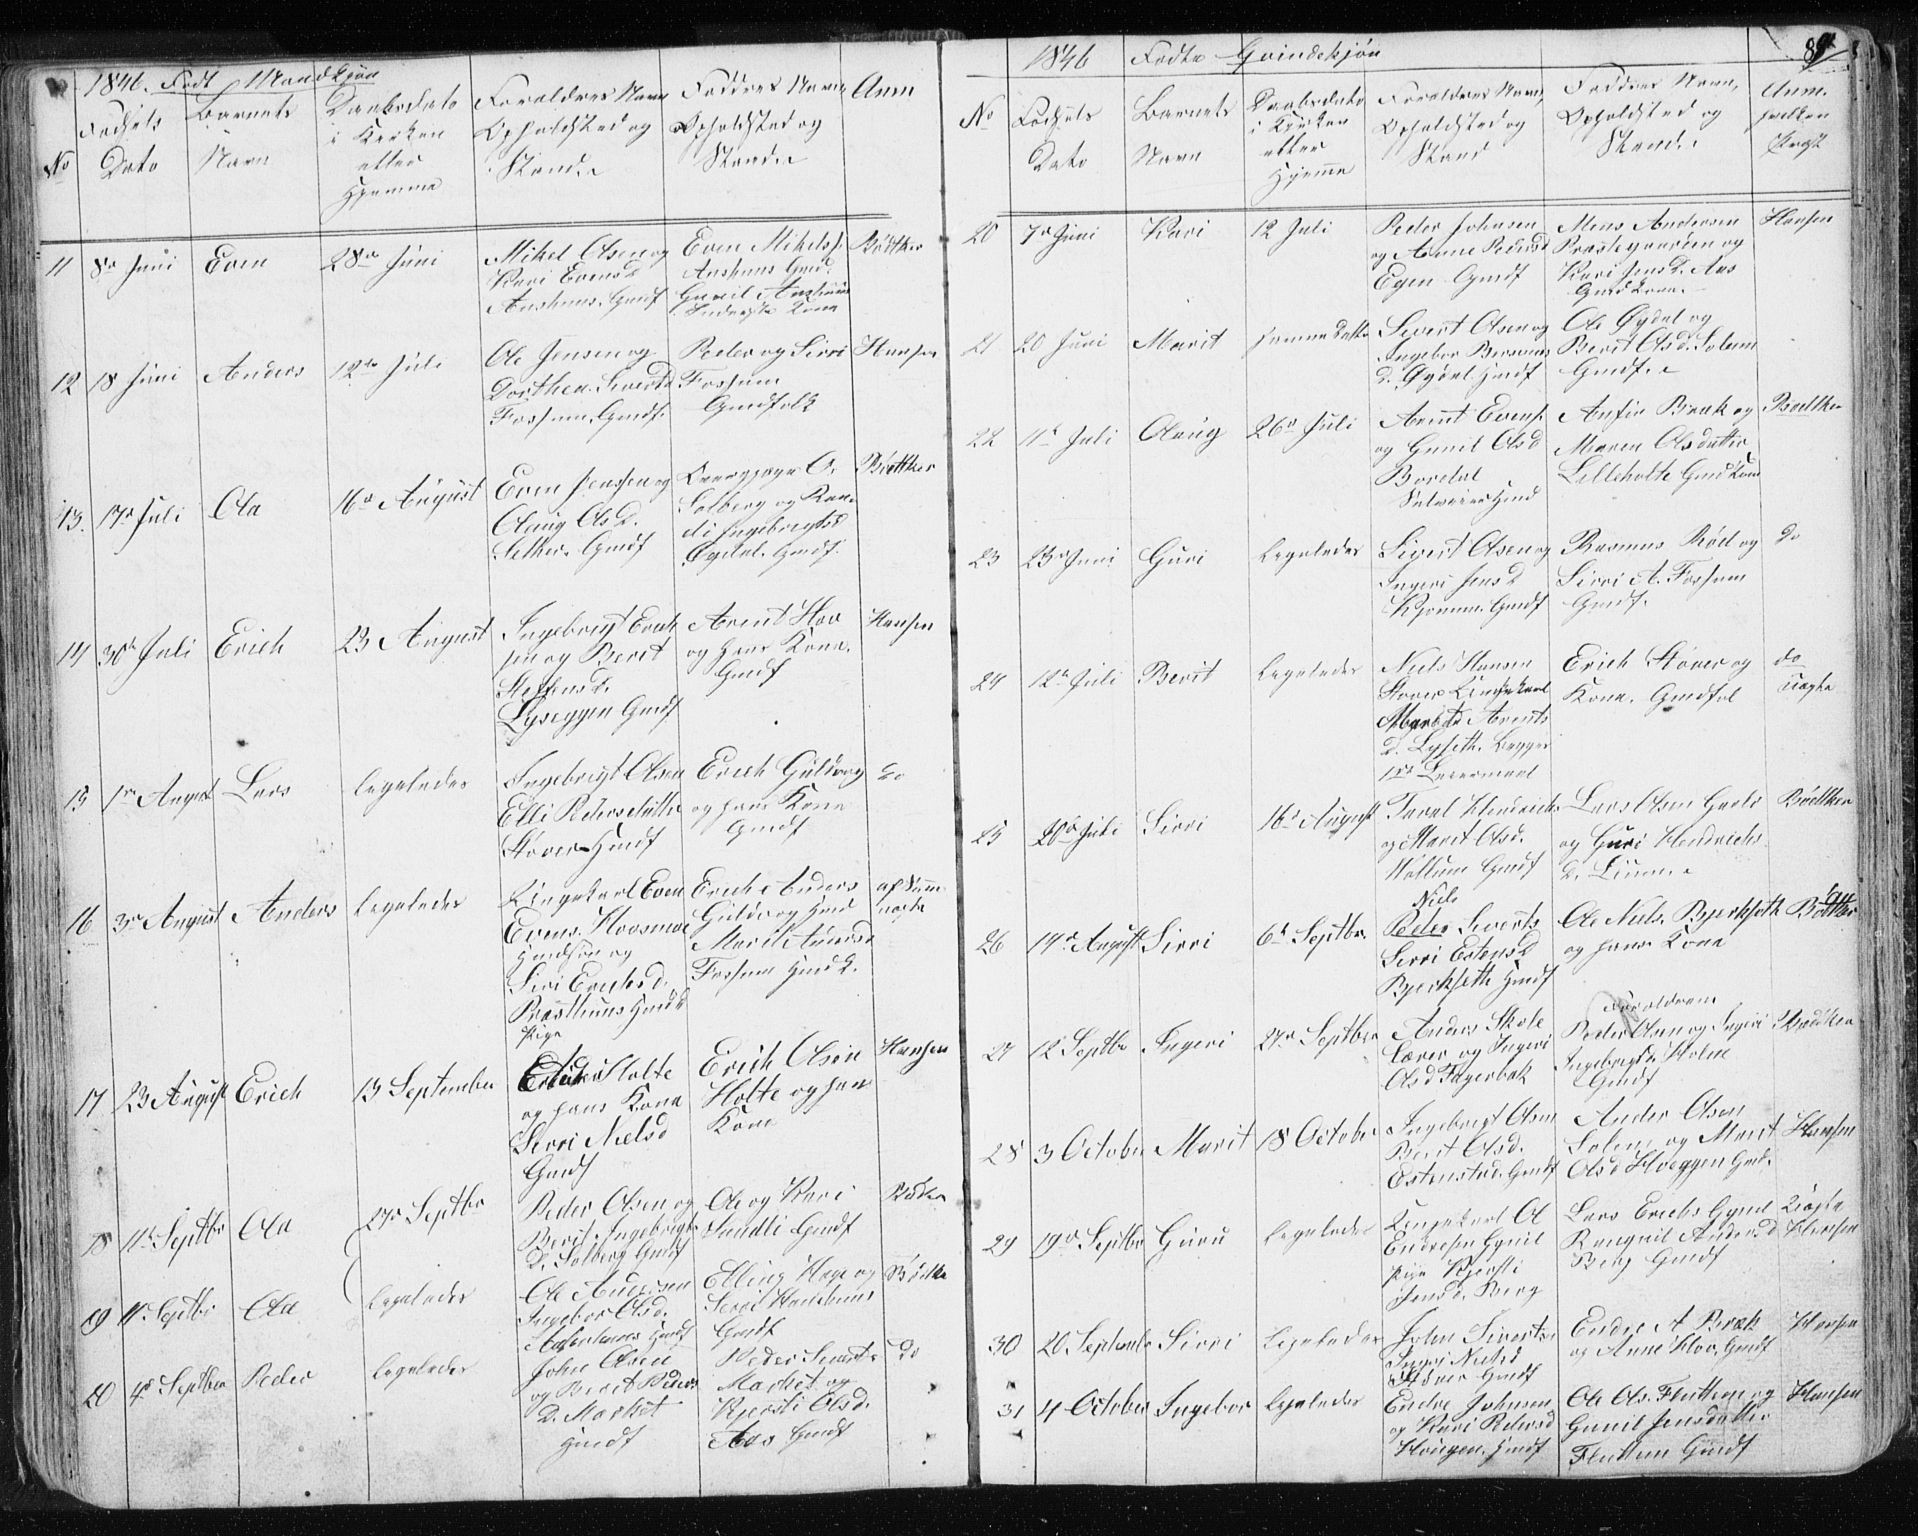 1846. Født Mandkjøn
No
Fødsels
Dato
Barnets
Navn
Daabsdato
i Kirken
eller
Hjemme
Forældres Navn
Opholdsted og
Stand.
Faddres Navn
Opholdsted og
Stand.
Anm
11 8de Juni Even 28de Juni
Mikel Olsen og
Kari Evensd.
Aashuus. Gmdf
Even Mikels.
Aashuus Gmd.
Gunil Aashuus
Kone
Bödtker
12 18 Juni Anders 12te Juli
Ole Jensen og
Dorthea Sivertsd
Fossum. Gmdf.
Peder og Sirri
Fossum
Gmdfolk
Hansen
13. 17de Juli Ola 16de August
Even Jensen og
Olaug Olsd.
Gmdf
Solberg og Ran-
di Ingebrigtsd
Øydal. Gmdf.
Bödtker
14 30te Juli Erich 23 August
Ingebrigt Erich
sen og Berit
Steffensd.
Lyseggen Gmdf
Arent Hov
og hans Kone.
Gmdf
Hansen
15 1ste August Lars ligeledes
Ingebrigt Olsen
Elli Pedersdatter
Støver Hmdf
Erich Guldvog
og hans Kone
Gmdf
do
16 3de August Anders ligeledes
Ungekarl Even
Evens. Hovsmoe
Hmdsøn og
Siri Erichsd.
Præsthuus Hmdd
Pige
Erich Anders
Guldvog Hmd
Marit Andersd
Fossum Hmdd.
af Samm
uægte
17 23 August Erich 13 September
Holte
og hans Kone
Sirri Nielsd
Gmdf
Erich Olsen
Holte og hans
Kone
Hansen
18 11te Septbr Ola 27de Septbr
Peder Olsen og
Berit Ingebrigts
D. Solberg Gmdf
Ole og Kari
Sandli Gmdf
19 11 Septbr Ola ligeledes
Ole Andersen
Ingebor Olsd.
Hmdf
Elling Hage og
Gmdf
Bödtke
20 4de Septber Peder ligeledes
John Olsen
og Berit Peders
D. Market
Hmdf
Peder Siverts
Market og
Kjersti Olsd.
Aas Gmdf
do
1846 Fødte Qvindekjøn
89
No
Fødsels
Dato
Barnets
Navn
Daabsdato
i Kirken
eller
Hjemme
Forældres Navn,
Opholdsted og
Stand
Faddres Navn,
Opholdsted og
Stand.
Anm.
hvilken
Prest
20 7de Juni Kari 12 Juli
Peder Johnsen
og Anne Pedersd
Egen Gmdf
Mons Andersen
Præstegaarden og
Kari Jensd. Aas
Gmd Kone.
Hansen
21 20 Juni Marit samme Dato
Sivert Olsen og
Ingebor
D. Øydal Hmdf
Ole Øydal og
Berit Olsd. Solem
Gmdf.
22 11te Juli Olaug 26de Juli
Arnt Evens.
og Gunil Olsd
Boredal
Selveier Hmd
Anfin Brak og
Maren Olsdatter
Lilleholte Gmd Kone
Bödtker
23 23de Juni Guri ligeledes
Sivert Olsen og
Ingeri Jensd
Gmdf
Rasmus Röd og
Sirri A. Fossum
Gmdf.
do
24 12te Juli Berit ligeledes
Niels Hansen
Støver Ungekarl
Marit Arents
D. Lyseth. Begges
1ste Leiermaal
Erich Støver og
Kone. Gmdfol
do
Uægte
25 20de Juli Sirri 16de August
Hendrichs
og Marit Olsd.
Gmdf
Lars Olsen
og Guri Hendrichs
D.
Bödtker
26 14de August Sirri 6te Septbr.
Niels
Peder Siverts
Sirri Estensd
Bjerkseth Hmdf
Ole Niels. Bjerkseth
og hans Kone
Bödtker
27 12 Septbr Ingeri 27de Septber
Anders Skole
lærer og Ingeri
Olsd Fagerbak
Forældrene
Peder Olsen og Ingeri
Ingebrigtsd. Holem
Gmdf
Bödtker
28 3 October Marit 18 October
Ingebrigt Olsen
Berit Olsd.
Estenstad. Gmdf
Ander Olsen
Solem og Marit
Olsd Hoeggen Gmd.
Hansen
29 19de Septbr Guru ligeledes
Ungekarl Ol
Endresen
Pige Kjersti
Jensd. Berg
Lars Erichs
Rangnil Andersd
Berg Gmdf
Uægte
Hansen
30 20 Septembr Sirri ligeledes
John Sivertse
Ingri Nielsd
Støver Hmdf
Endre A Brak
og Anne Hov. Gmdf
Hansen
31 4 October Ingebor ligeledes
Endre Johnsen
og Kari Pedersd
Hougen. Hmdf
Ole Ols. Flattum og
Gunil Jensdatter
Flattum Gmdf
Hansen